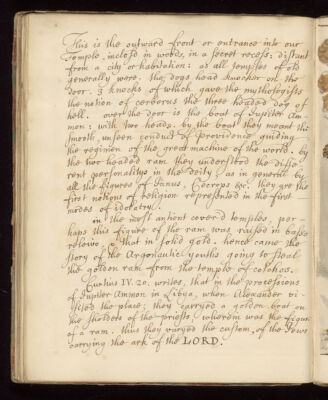 This is the outward front or entrance into our
Temple, inclosd in woods, in a secret recess; distant
from a city or habitation: as all temples of old
generally were. the dogs head knocker on the
door. 3 knocks of which gave the mythologists
the notion of cerberus the three headed dog of
hell. over the door is the boat of Jupiter Am-
mon; with two heads. by the boat they meant the
smooth, unseen conduct of providence guiding
the regimen of the great machine of the world. by
the two headed ram they understood the diffe-
rent personalitys in the deity, as in general by
all the figures of Janus, Cecrops &c. they are the
first notions of religion represented in the first
modes of idolatry.
in the most antient coverd temples, per-
haps this figure of the ram was raised in basso
relievo, & that in solid gold. hence came the
story of the Argonautic youths going to steal
the golden ram from the temple of colchos.
Curtius IV. 20. writes, that in the processions
of Jupiter Ammon in Libya, when Alexander vi-
sited the place; they carryed a golden boat on
the sholders of the priests, wherein was the figure
of a ram. thus they varyed the custom, of the Jews
carrying the ark of the LORD.